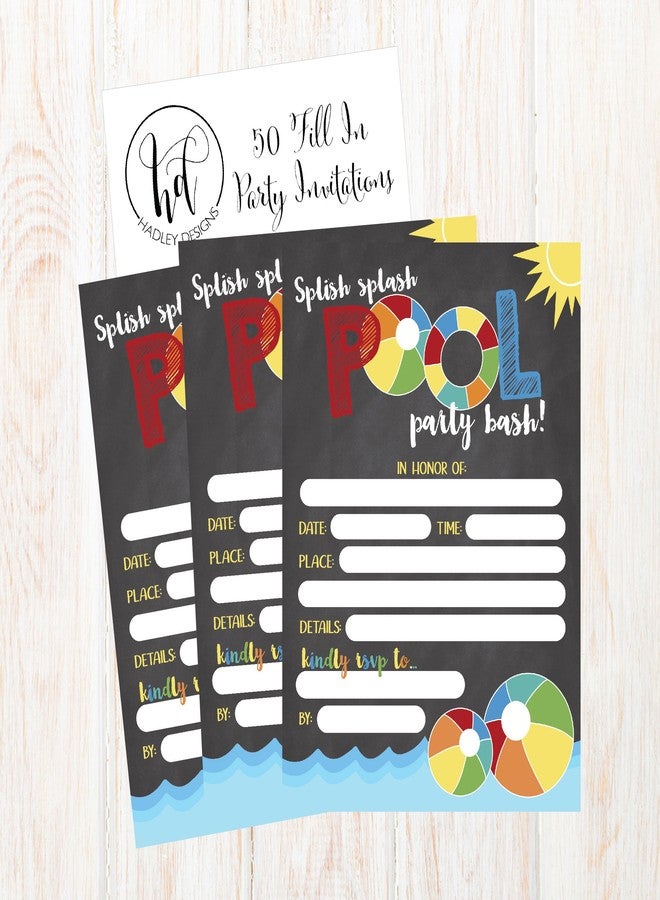 50 Fill In
Party Invitations
hd
HADLEY DESIGNS
Splish spl
P
DATE:
PLACE:
DETAILS:
kindly rs
BY:
Splish spl
P
DATE:
PLACE:
DETAILS:
kindly rs
BY:
Splish splash
POOL
party bash!
IN HONOR OF:
DATE: TIME:
PLACE:
DETAILS:
kindly rsvp to...
BY: